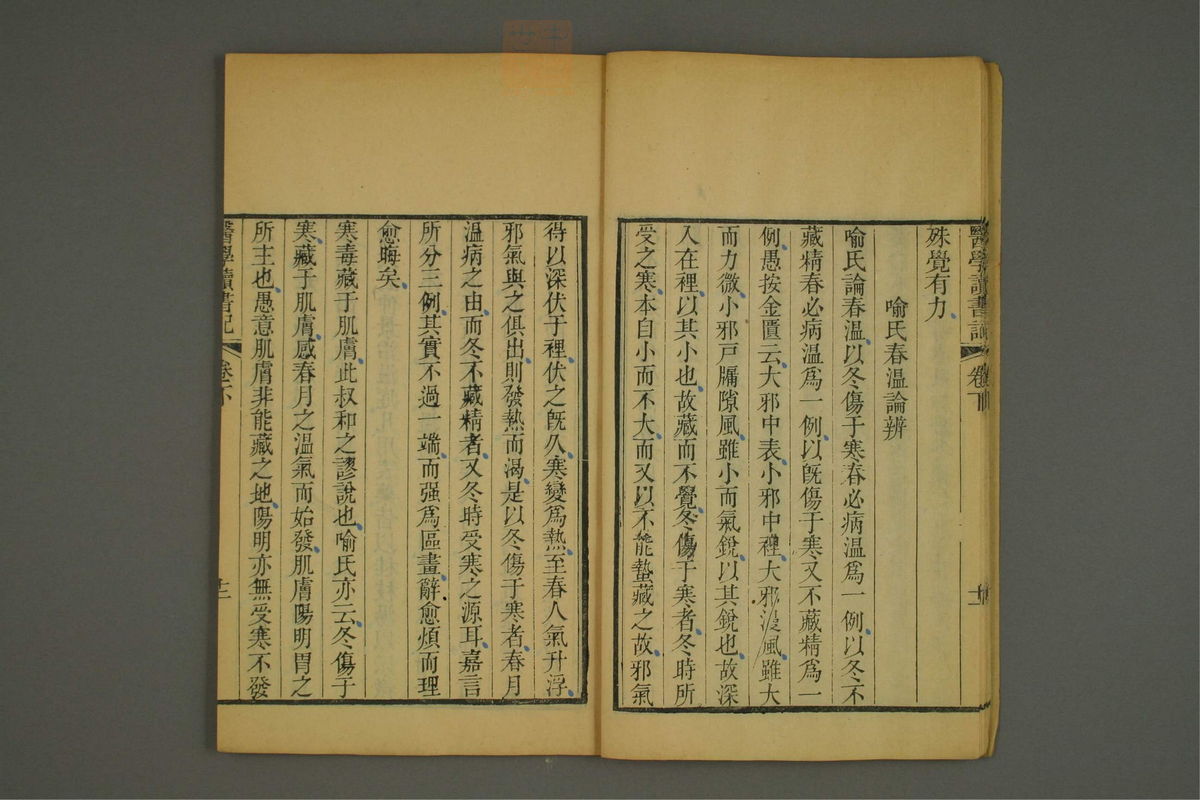 醫學讀書記
卷下
十二
殊覺有力
喻氏春温論辨
喻氏論春温以冬傷于寒春必病温爲一例以冬不
藏精春必病温爲一例以既傷于寒又不藏精爲一
例愚按金匱云大邪中表小邪中裡大邪漫風雖大
而力微小邪戸牖隙風雖小而氣銳以其銳也故深
入在裡以其小也故藏而不覺冬傷于寒者冬時所
受之寒本自小而不大而又以不能蟄藏之故邪氣
得以深伏于裡伏之旣久寒變爲熱至春人氣升浮
邪氣與之俱出則發熱而渴是以冬傷于寒者春月
温病之由而冬不藏精者又冬時受寒之源耳嘉言
所分三例其實不過一端而强爲區畫辭愈煩而理
愈晦矣
寒毒藏于肌膚此叔和之謬說也喻氏亦云冬傷于
寒藏于肌膚感春月之温氣而始發肌膚陽明胃之
所主也愚意肌膚非能藏之地陽明亦無受寒不發
醫學讀書記
卷下